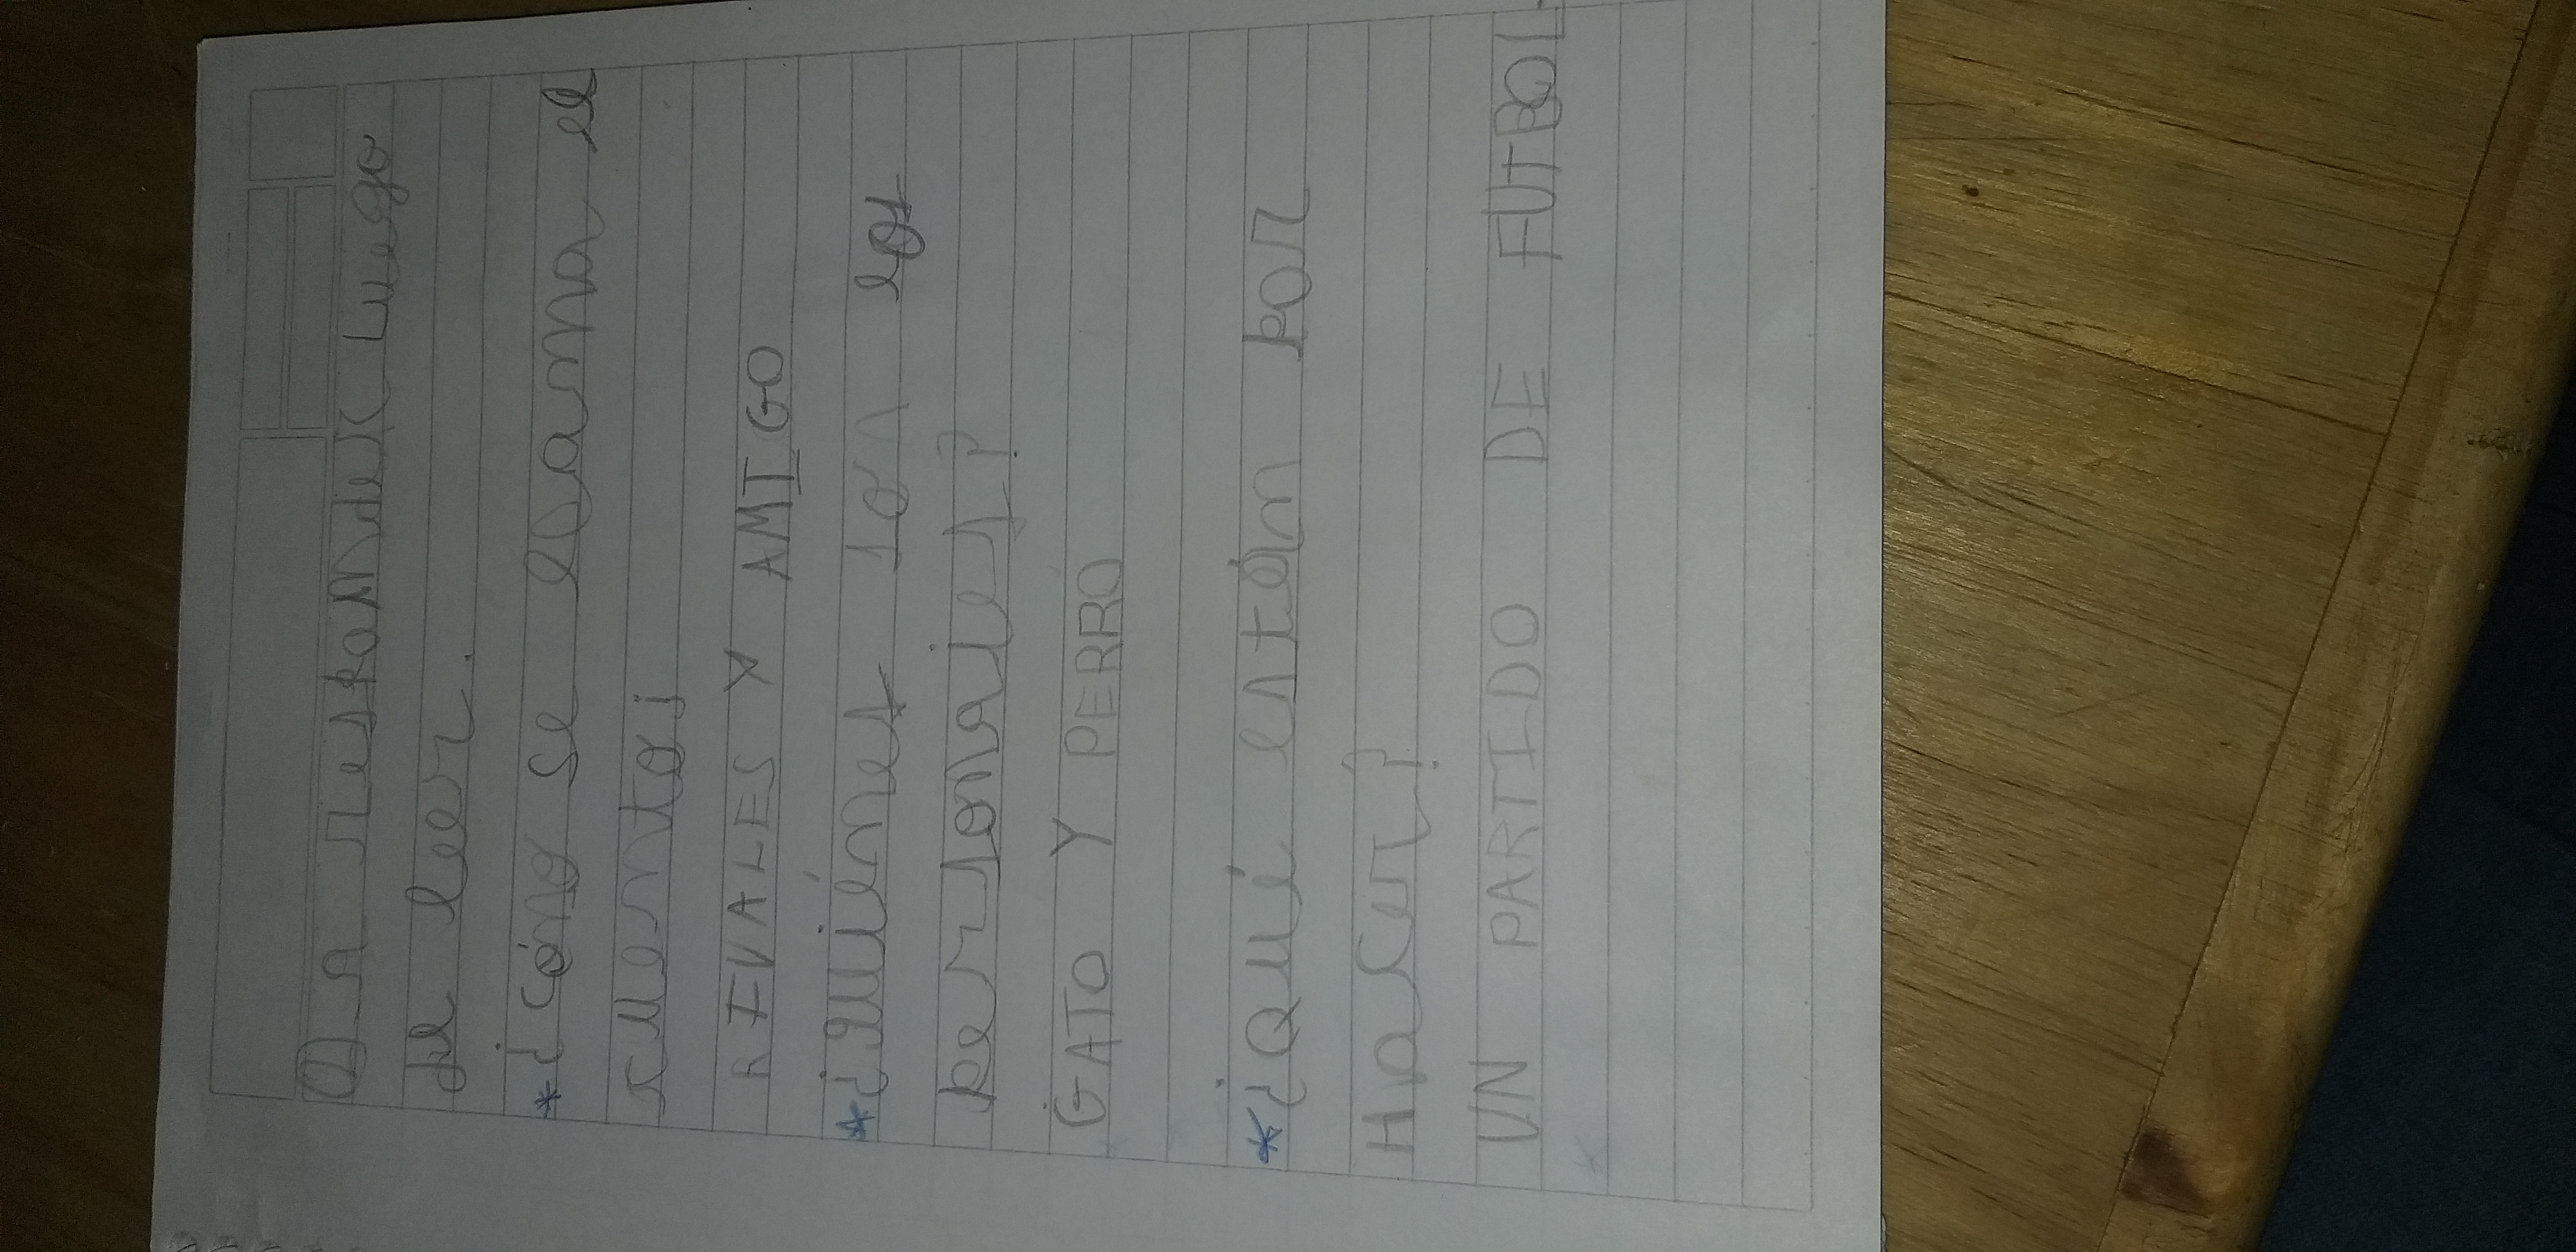 1 A responder luego
de leer.
* ¿cómo se llama el
cuento¡
RIVALES Y AMIGO
* ¿quiénes son los
personajes?
GATO Y PERRO
* ¿Qué están por
Hacer?
UN PARTIDO DE FUTBOL